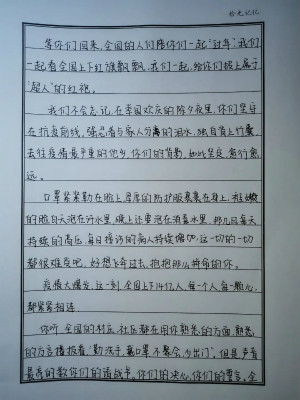 拾光记忆
等你们回来,全国的人们陪你们一起“过年”,我们
一起看全国上下红旗飘飘,我们一起,给你们披上属于
“超人”的红袍。
我们不会忘记,在举国欢庆的除夕夜里,你们坚守
在抗疫前线,强忍着与家人分离的泪水,独自背上行囊,
去往疫情最严重的他乡,你们的背影,如此坚定,愈行愈
远。
口罩紧紧勒在脸上,厚厚的防护服裹在身上,
的脸白天泡在汗水里,晚上还要泡在消毒水里,那几日每天
持续的高压,每日接诊的病人持续增加,这一切的一切
都很难受吧,好想飞奔过去,抱抱那么拼命的你。
疫情大爆发,这一刻,全国上下14亿人,每一个人,每一颗心,
都紧紧相连。
你听,全国的村庄、社区都在用你熟悉的方言,熟悉
的方言播报着“勤洗手,戴口罩不聚会,少出门”,但是声音
最高的数你们的请战书。你们的决心,你们的誓言,全